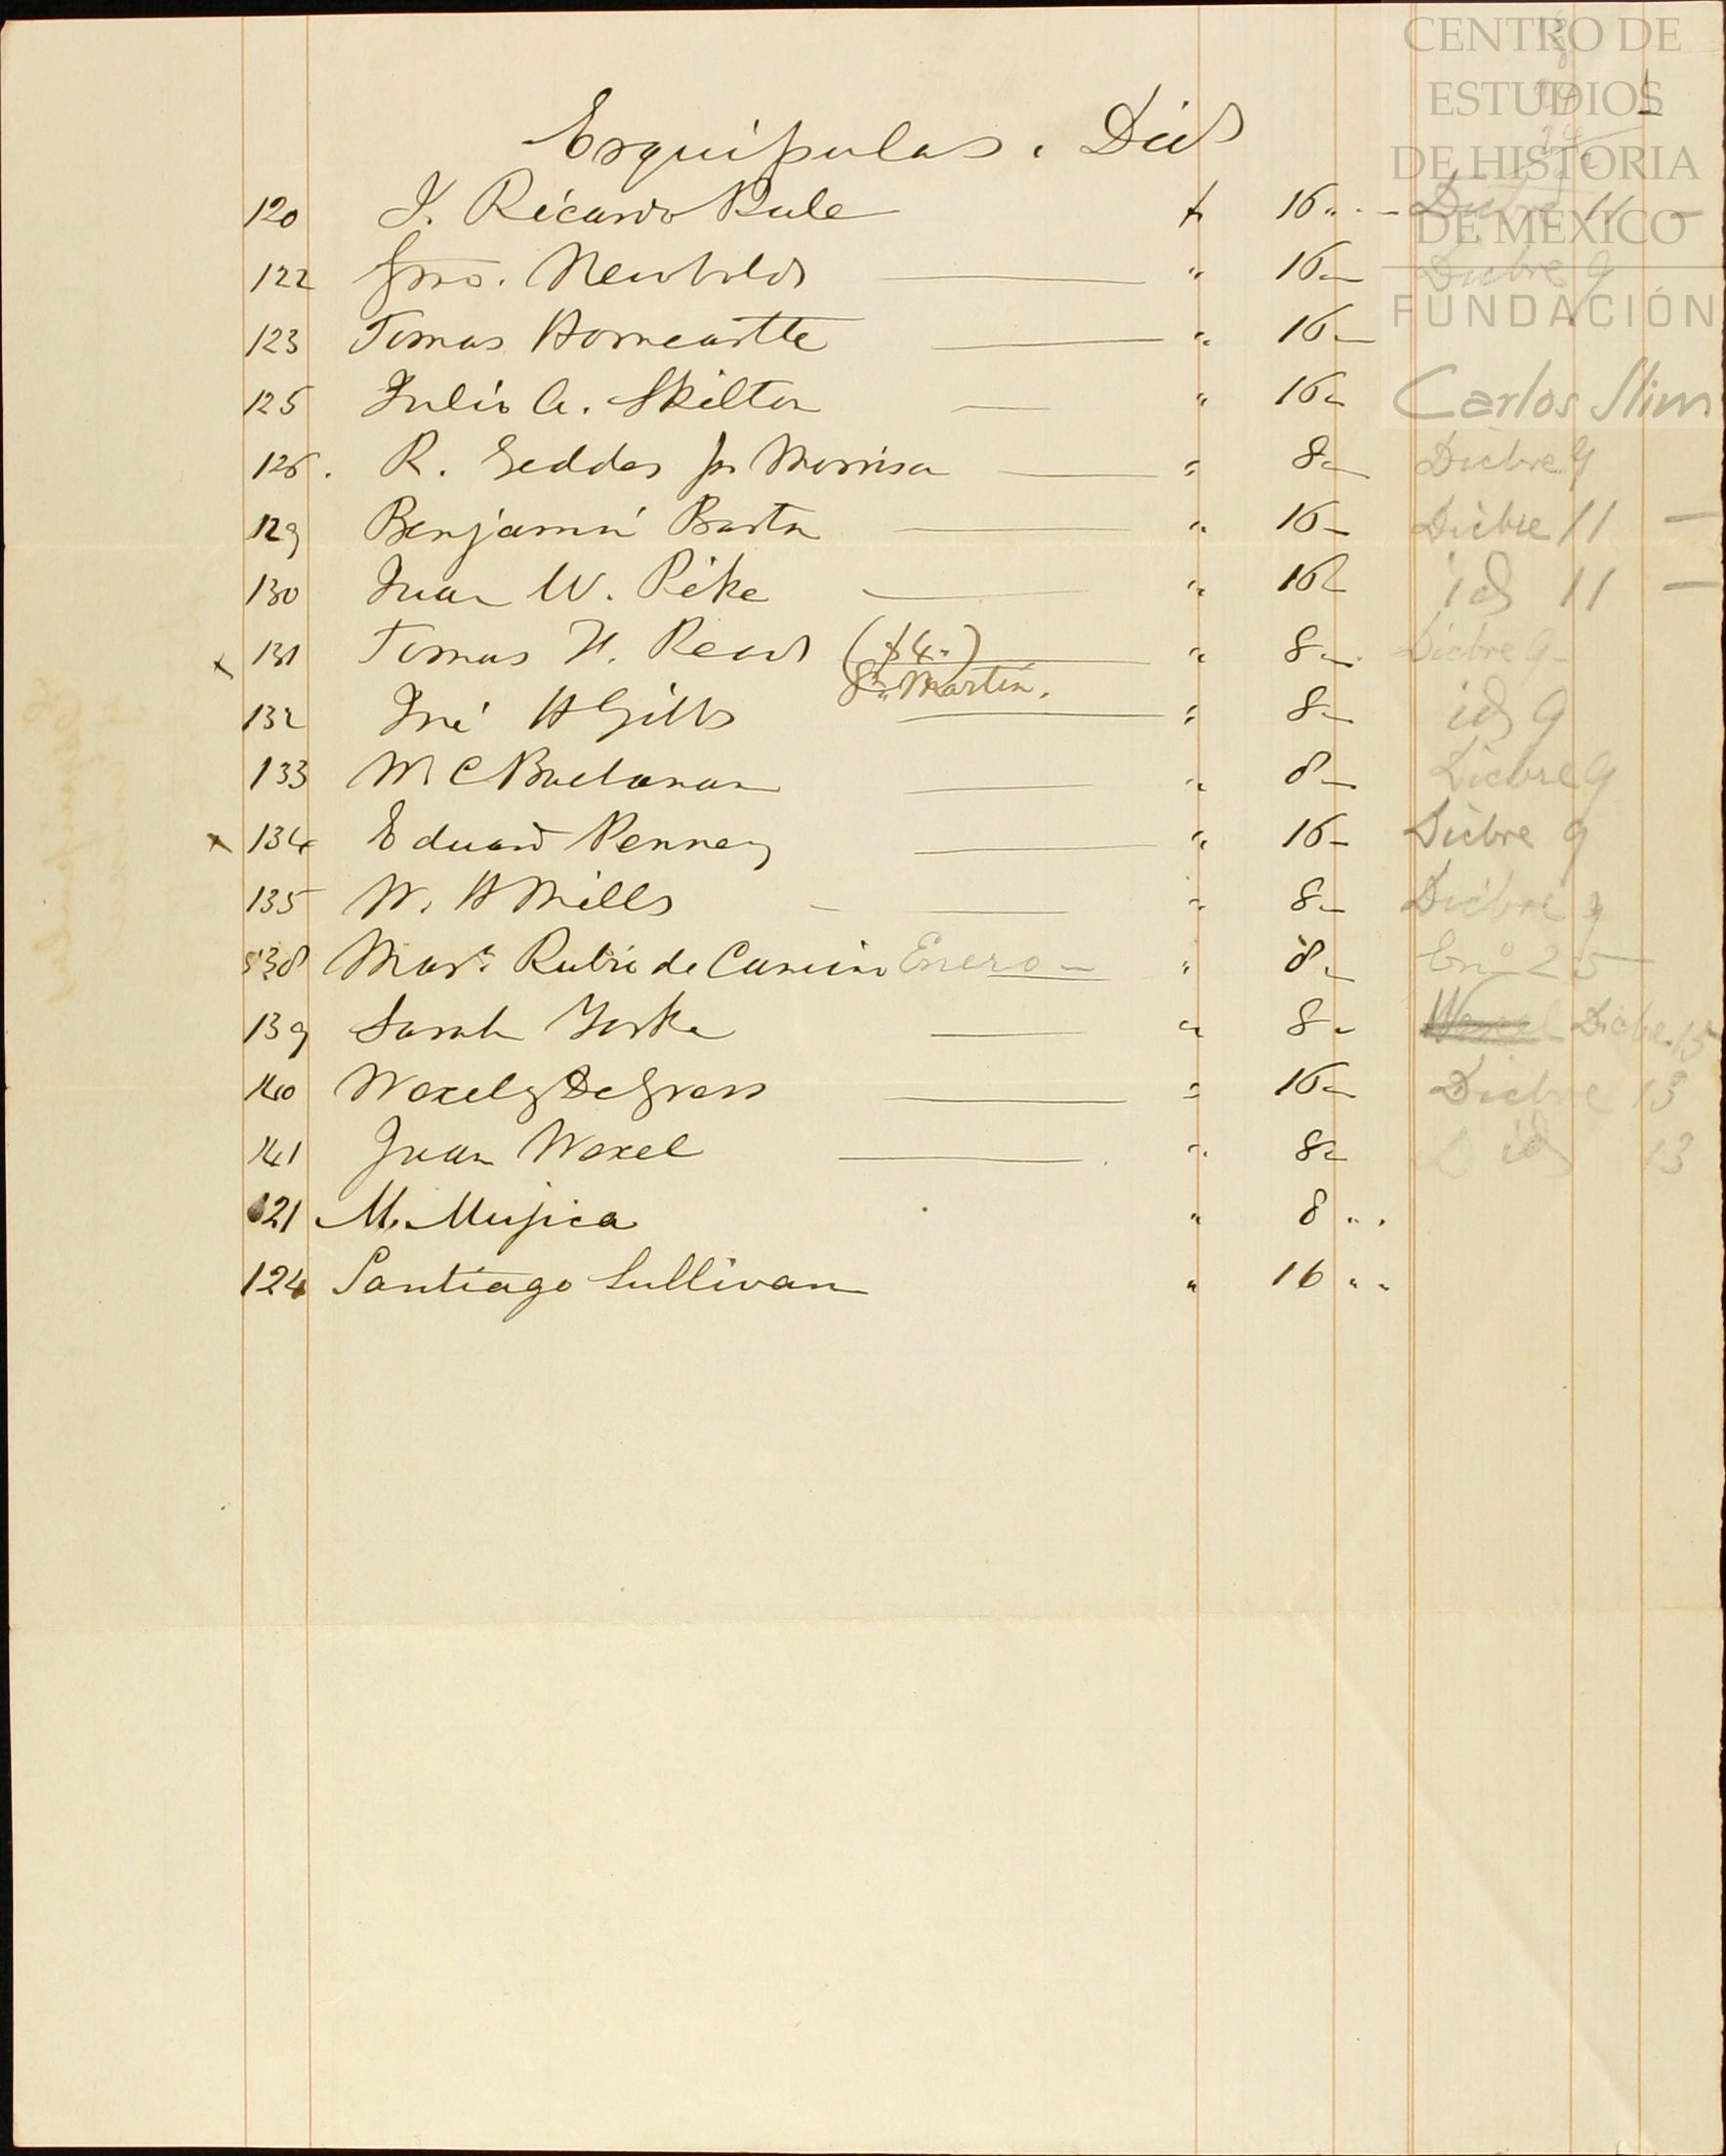 Esquipulas. Dic
120 J. Ricardo Rule $ 16 Dicbre 11 —
122 Jno. Newbold " 16 Dicbre 9
123 Tomas Horncastle " 16
125 Julio A. Skilton " 16
126. R. Geddes pr Morrison " 8 Dicbre 9
129 Benjamin Barton " 16 Dicbre 11 —
130 Juan W. Pike " 16 id 11 —
x 131 Tomas H. Read ($4.) " 8 Dicbre 9
Sn. Martin.
132 José H Gibbs " 8 id 9
133 M C Buchanan " 8 Dicbre 9
x 134 Eduard Penney " 16 Dicbre 9
135 W. H Mills " 8 Dicbre 9
138 Mara. Rubio de Cancino Enero " 8 Eno 25
139 Sarah Yorke " 8 Wexel Dicbe. 15
140 Wexel y DeGress " 16 Dicbre 13
141 Juan Wexel " 8 id 13
121 M. Mujica " 8 ..
124 Santiago Sullivan " 16 ..
CENTRO DE
ESTUDIOS
DE HISTORIA
DE MÉXICO
FUNDACIÓN
Carlos Slim